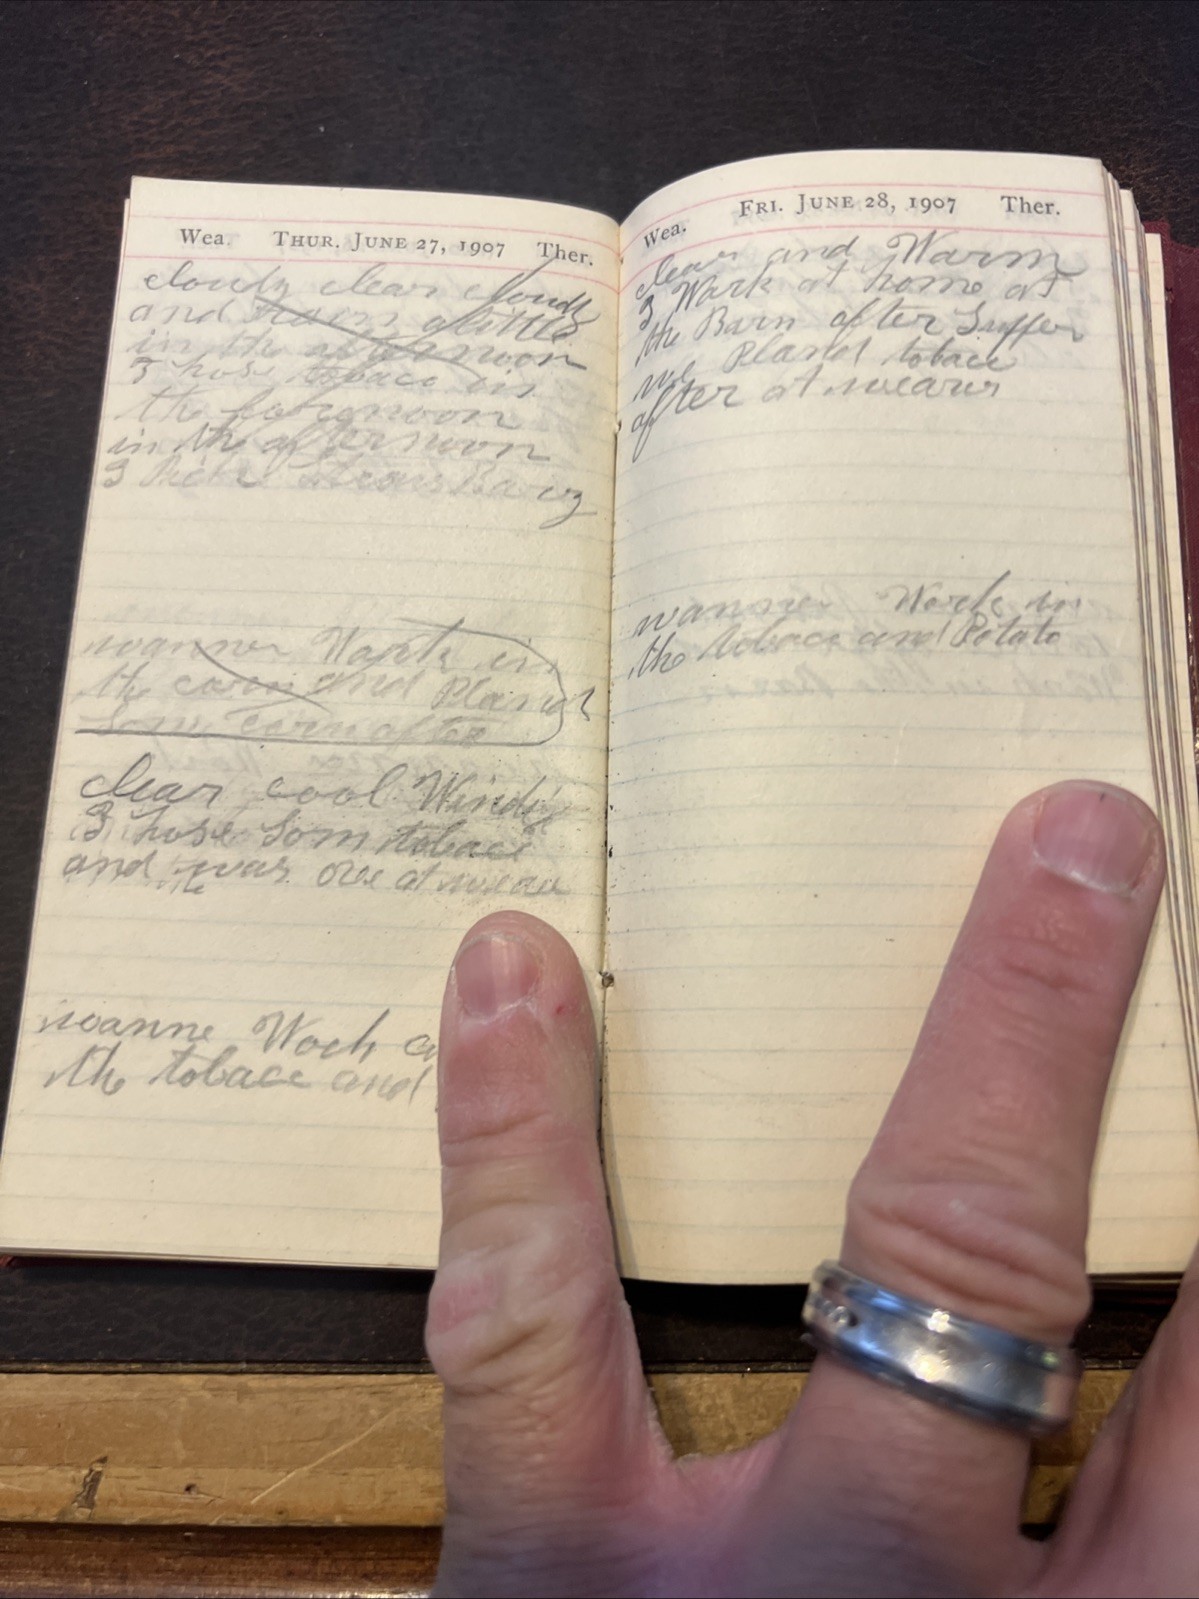 Wea. THUR. JUNE 27, 1907 Ther.
cloudy clear cloudy
and rain alittle
in the afternoon
I hose tobaco in
the forgnoon
in the afternoon
I Pick
wanner Work in
the corn and Plant
Som corn after
clear cool Windy
I hose Som tobace
and the was ove at weau
wanne Work
the tobace and
Wea. FRI. JUNE 28, 1907 Ther.
clear and Warm
I Work at home at
the Barn after Supper
we Pland tobace
after at weaver
wanner Work in
the tobace and Potato